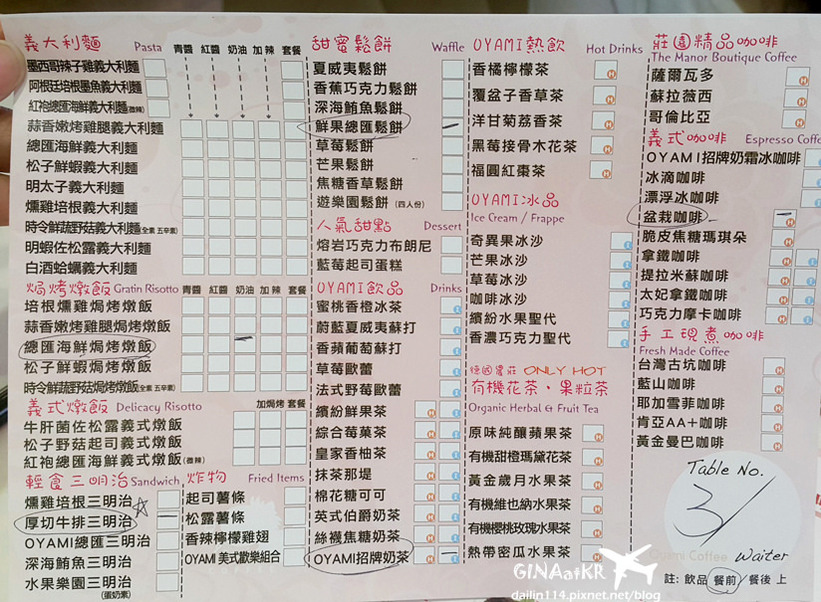 義大利麵 Pasta 青醬 紅醬 奶油 加辣 套餐
墨西哥辣子雞義大利麵
阿根廷培根墨魚義大利麵
紅袍總匯海鮮義大利麵(微辣)
蒜香嫩烤雞腿義大利麵
總匯海鮮義大利麵
松子鮮蝦義大利麵
明太子義大利麵
燻雞培根義大利麵
時令鮮蔬野菇義大利麵(全素 五辛素)
明蝦佐松露義大利麵
白酒蛤蠣義大利麵
焗烤燉飯 Gratin Risotto 青醬 紅醬 奶油 加辣 套餐
培根燻雞焗烤燉飯
蒜香嫩烤雞腿焗烤燉飯
總匯海鮮焗烤燉飯
松子鮮蝦焗烤燉飯
時令鮮蔬野菇焗烤燉飯(全素 五辛素)
義式燉飯 Delicacy Risotto 加焗烤 套餐
牛肝菌佐松露義式燉飯
松子野菇起司義式燉飯
紅袍總匯海鮮義式燉飯(微辣)
輕食三明治 Sandwich
燻雞培根三明治
厚切牛排三明治
OYAMI總匯三明治
深海鮪魚三明治
水果樂園三明治
(蛋奶素)
炸物 Fried Items
起司薯條
松露薯條
香辣檸檬雞翅
OYAMI 美式歡樂組合
甜蜜鬆餅 Waffle
夏威夷鬆餅
香蕉巧克力鬆餅
深海鮪魚鬆餅
鮮果總匯鬆餅
草莓鬆餅
芒果鬆餅
焦糖香草鬆餅
遊樂園鬆餅 (四人份)
人氣甜點 Dessert
熔岩巧克力布朗尼
藍莓起司蛋糕
OYAMI飲品 Drinks
蜜桃香橙冰茶
蔚藍夏威夷蘇打
香蘋葡萄蘇打
草莓歐蕾
法式野莓歐蕾
繽紛鮮果茶
綜合莓果茶
皇家香柚茶
抹茶那堤
棉花糖可可
英式伯爵奶茶
絲襪焦糖奶茶
OYAMI招牌奶茶
OYAMI熱飲 Hot Drinks
香橘檸檬茶
覆盆子香草茶
洋甘菊荔香茶
黑莓接骨木花茶
福圓紅棗茶
OYAMI冰品
Ice Cream / Frappe
奇異果冰沙
芒果冰沙
草莓冰沙
咖啡冰沙
繽紛水果聖代
香濃巧克力聖代
德國農莊 ONLY HOT
有機花茶、果粒茶
Organic Herbal & Fruit Tea
原味純釀蘋果茶
有機甜橙瑪黛花茶
黃金歲月水果茶
有機維也納水果茶
有機櫻桃玫瑰水果茶
熱帶密瓜水果茶
莊園精品咖啡
The Manor Boutique Coffee
薩爾瓦多
蘇拉薇西
哥倫比亞
義式咖啡 Espresso Coffe
OYAMI招牌奶霜冰咖啡
冰滴咖啡
漂浮冰咖啡
盆栽咖啡
脆皮焦糖瑪琪朵
拿鐵咖啡
提拉米蘇咖啡
太妃拿鐵咖啡
巧克力摩卡咖啡
手工現煮咖啡
Fresh Made Coffee
台灣古坑咖啡
藍山咖啡
耶加雪菲咖啡
肯亞AA+咖啡
黃金曼巴咖啡
Table No.
3/
Oyami Coffee Waiter
註: 飲品 餐前/餐後 上
GINAatKR
dailin114.pixnet.net/blog